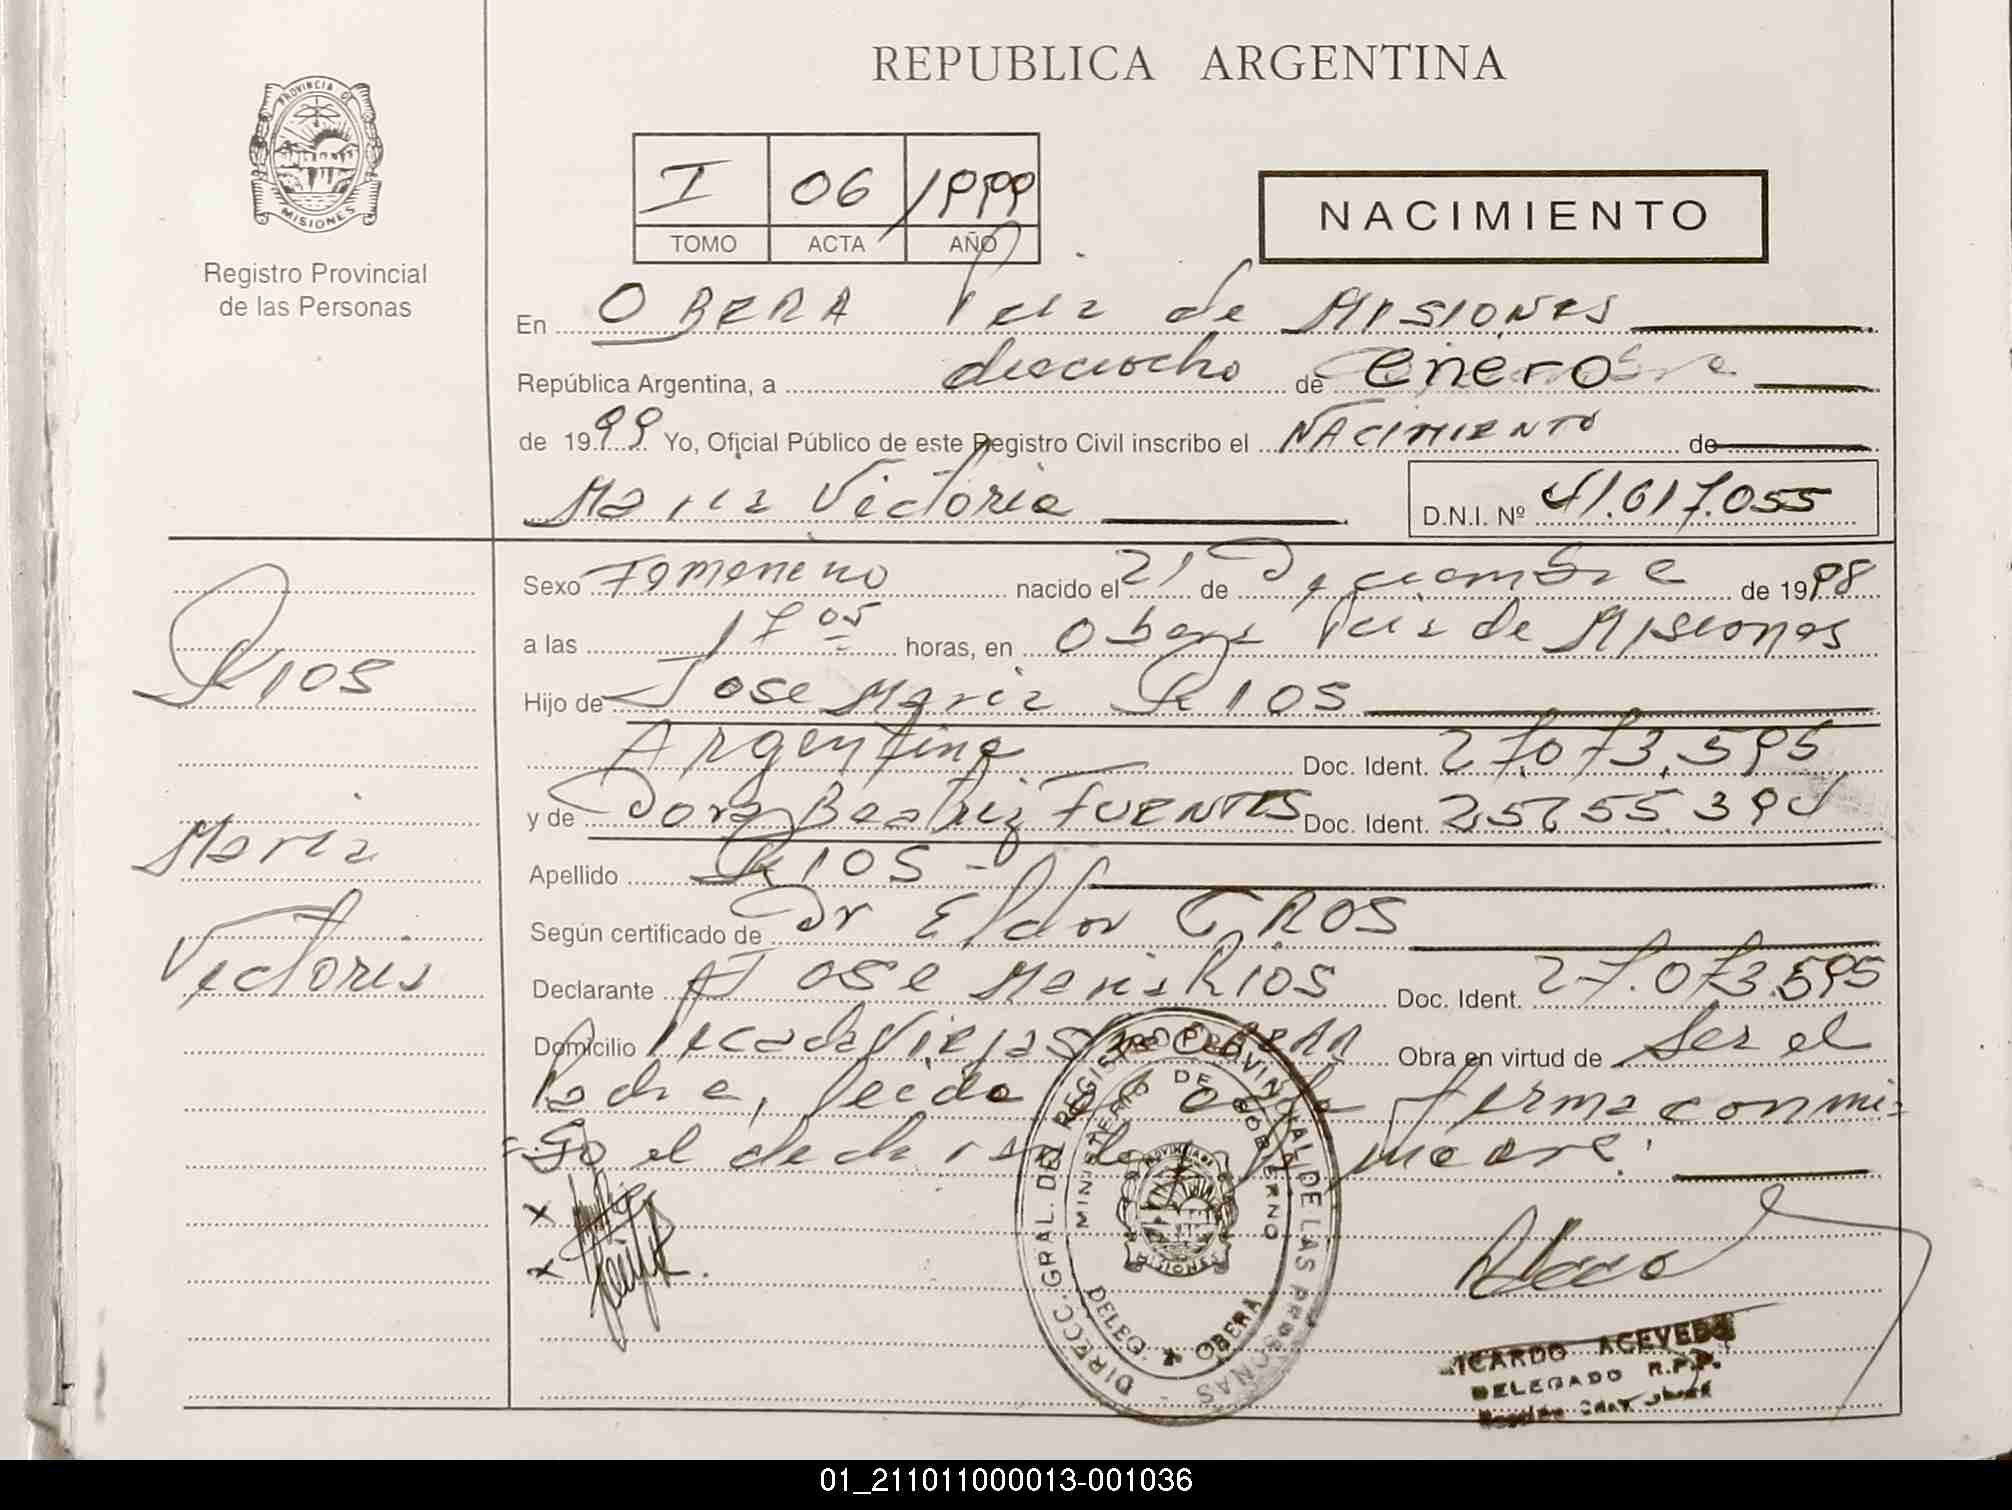 REPUBLICA ARGENTINA
PROVINCIA DE
MISIONES
Registro Provincial
de las Personas
I 06 1999
TOMO ACTA AÑO
NACIMIENTO
En OBERA Pcia de MISIONES
República Argentina, a dieciocho de enero
de 1999 Yo, Oficial Público de este Registro Civil inscribo el NACIMIENTO de
Maria Victoria
D.N.I. Nº 41.617.055
Rios
Maria
Victoria
Sexo Femenino nacido el 21 de Diciembre de 1998
a las 17 05 horas, en Obera Pcia de Misiones
Hijo de Jose Maria RIOS
Argentina Doc. Ident. 27.073.595
y de Dora Beatriz FUENTES Doc. Ident. 25.755.394
Apellido RIOS -
Según certificado de Dr Eldor GROS
Declarante Jose Maria RIOS Doc. Ident. 27.073.595
Domicilio Picada Viejas OBERA Obra en virtud de Ser el
Padre, leida el acta firma conmi=
=go el declarante
x
x
DIRECC. GRAL. DEL REGISTRO PROVINCIAL DE LAS PERSONAS
MINISTERIO DE GOBIERNO
PROVINCIA DE
MISIONES
DELEG. OBERA
RICARDO ACEVEDO
DELEGADO R.P.P.
01_211011000013-001036